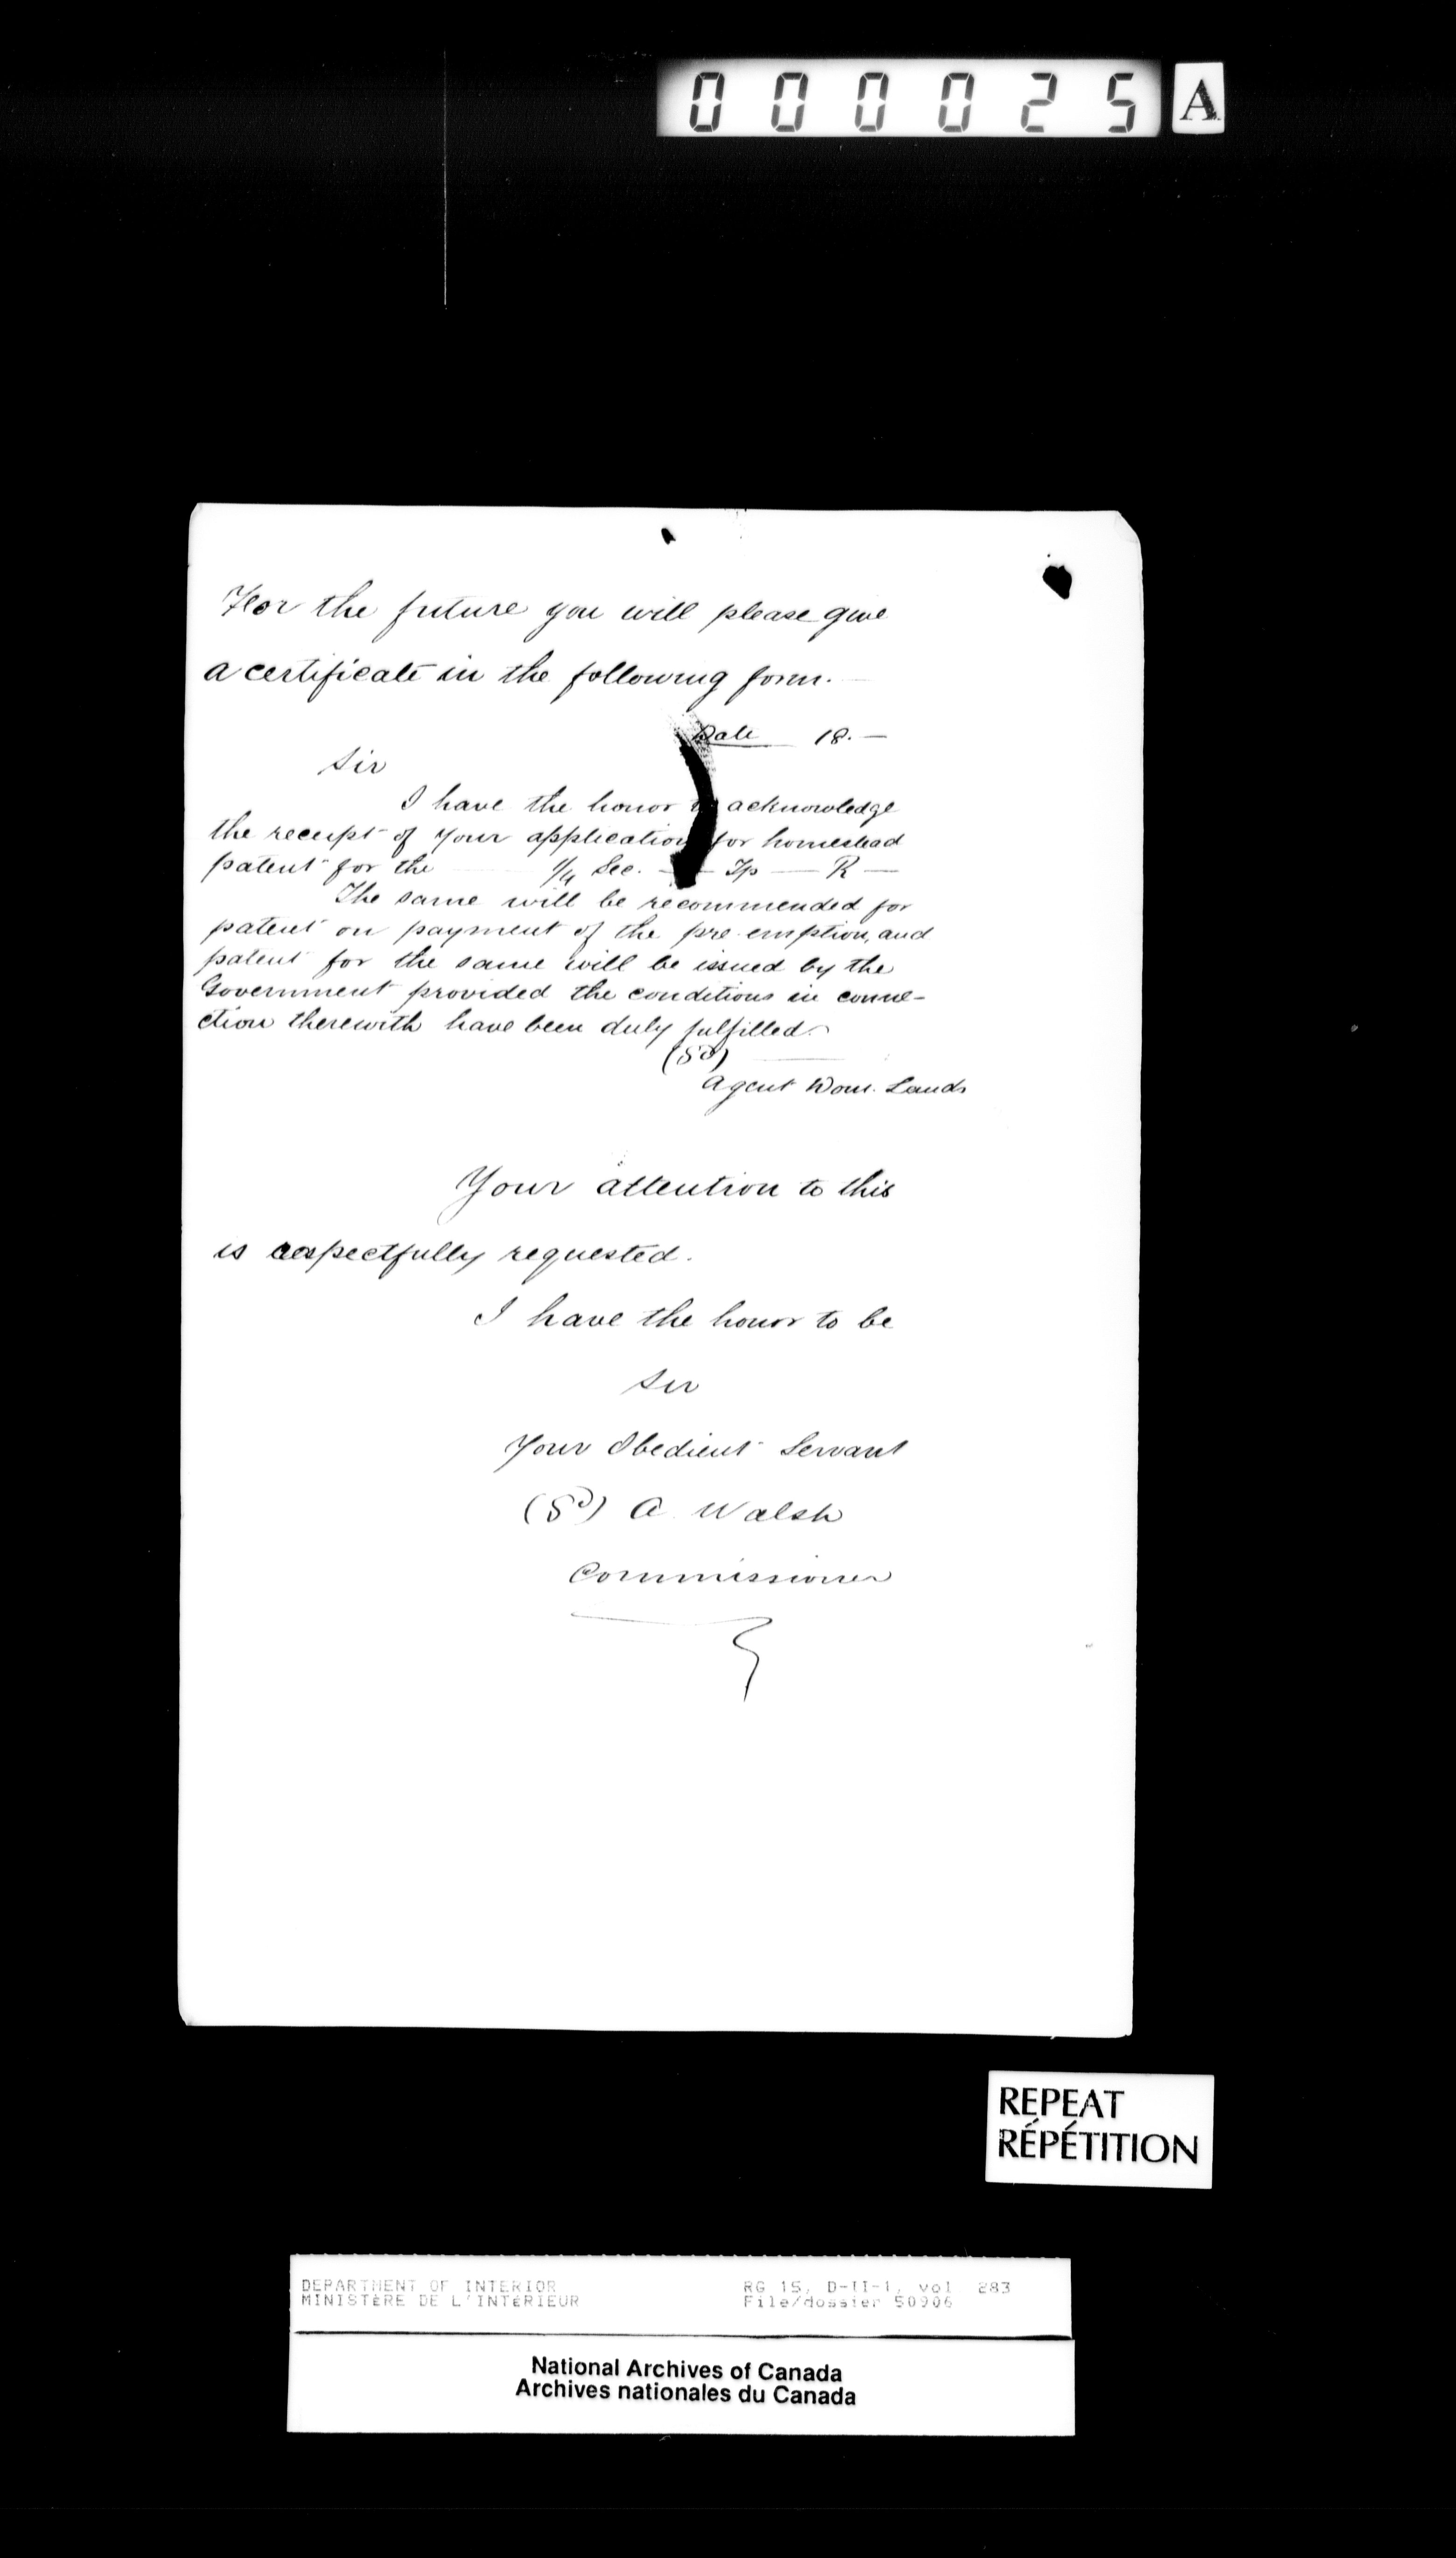 000025 A
For the future you will please give
a certificate in the following form.
Date 18.—
Sir
I have the honor to acknowledge
the receipt of your application for homestead
patent for the 1/4 Sec. — Tp — R —
The same will be recommended for
patent on payment of the pre-emption, and
patent for the same will be issued by the
Government provided the conditions in conne-
ction therewith have been duly fulfilled.
(Sd)
Agent Dom. Lands
Your attention to this
is respectfully requested.
I have the honor to be
Sir
Your Obedient Servant
(Sd) A. Walsh
Commissioner
REPEAT
RÉPÉTITION
DEPARTMENT OF INTERIOR RG 15, D-II-1, vol 283
MINISTÈRE DE L'INTÉRIEUR File/dossier 50906
National Archives of Canada
Archives nationales du Canada